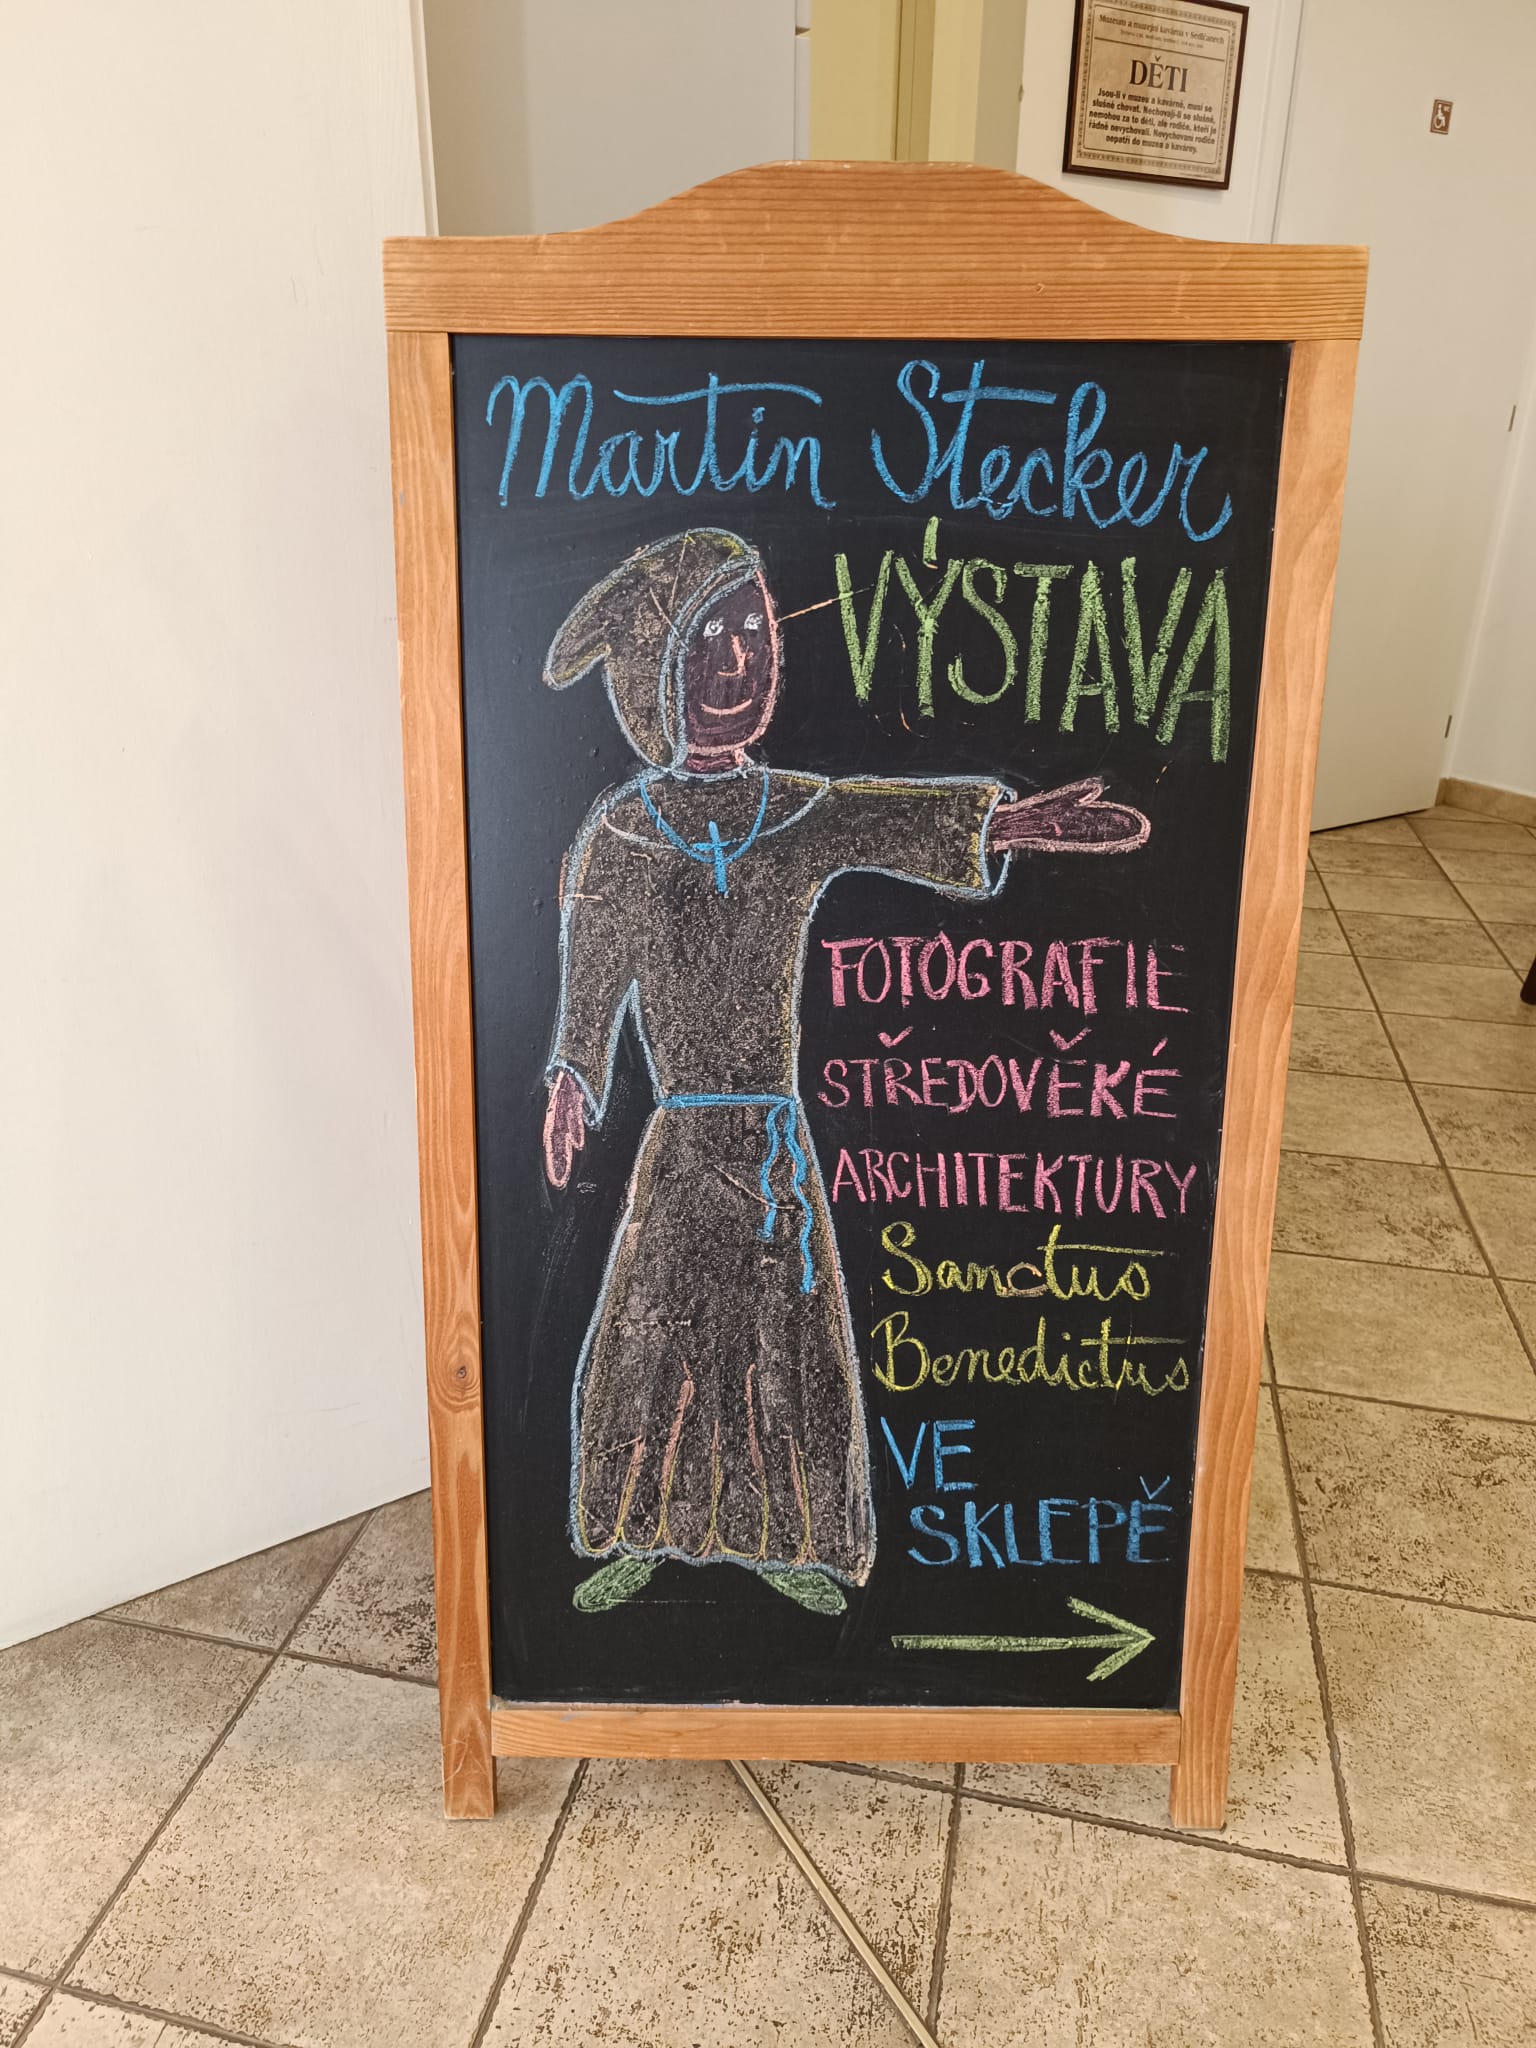 Muzeum a muzejní kavárna v Sedlčanech
DĚTI
Jsou-li v muzeu a kavárně, musí se
slušně chovat. Nechovají-li se slušně,
nemohou za to děti, ale rodiče, kteří je
řádně nevychovali. Nevychovaní rodiče
nepatří do muzea a kavárny.
Martin Stecker
VÝSTAVA
FOTOGRAFIE
STŘEDOVĚKÉ
ARCHITEKTURY
Sanctus
Benedictus
VE
SKLEPĚ